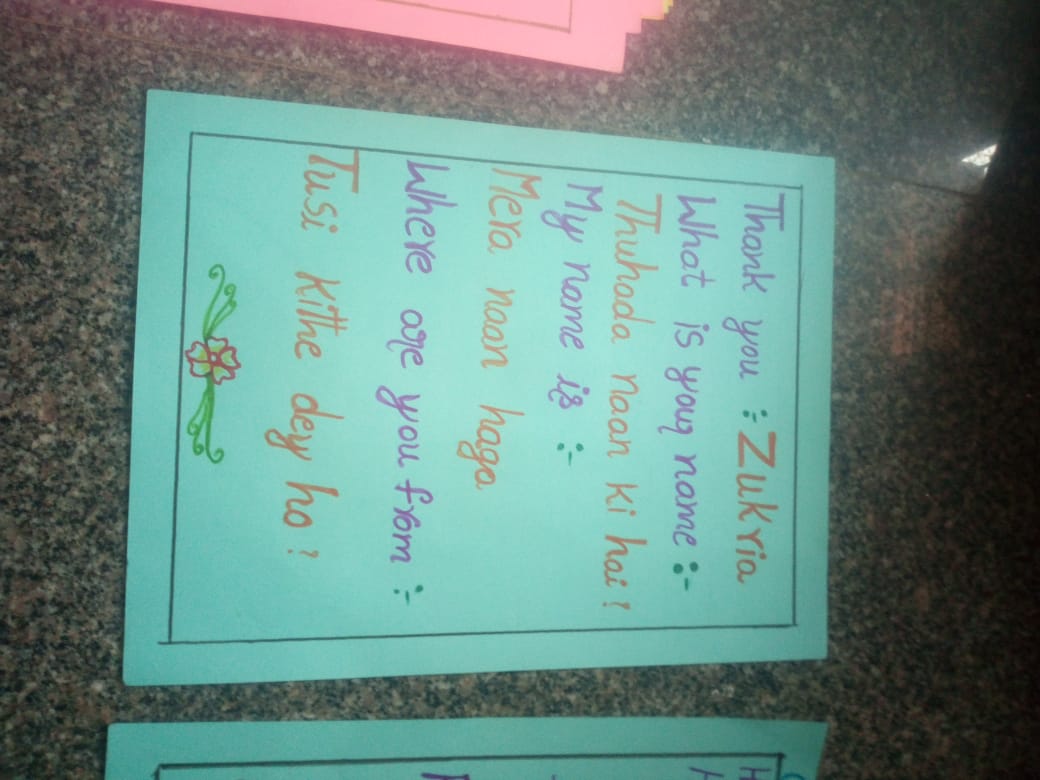 Thank you :- Zukria
What is your name :-
Thuhada naan ki hai ?
My name is :-
Mera naan haga
Where are you from :-
Tusi kithe dey ho ?